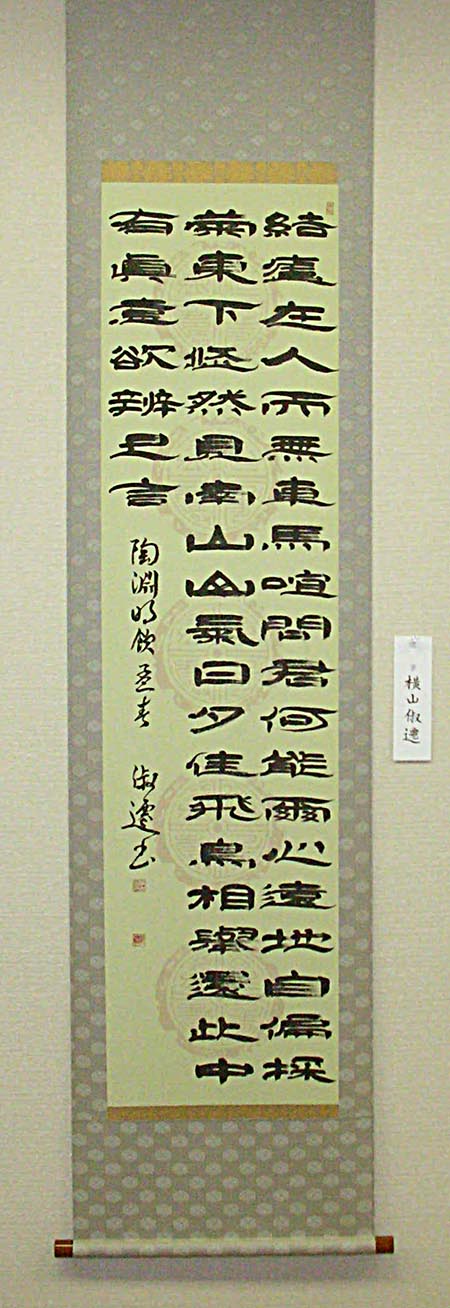 結廬在人而無車馬喧問君何能爾心遠地自偏採
菊東下悠然見南山山氣日夕佳飛鳥相與還此中
有眞意欲辨已言
陶淵明飲
書
横山